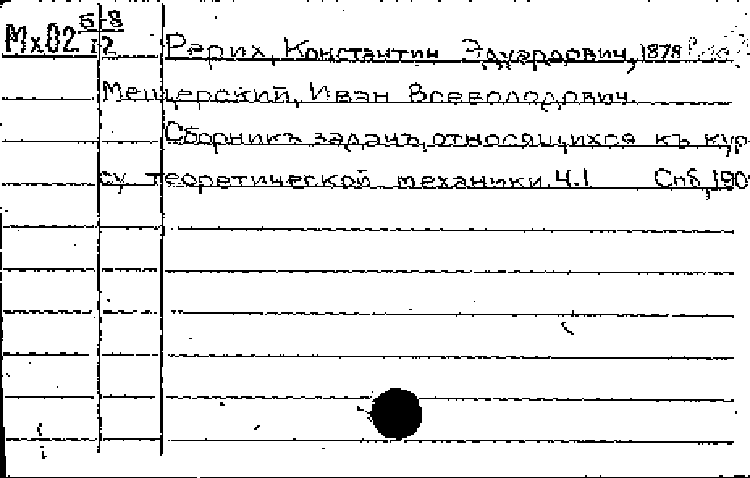 Мх02 5-8/12
Рерих, Константин Эдуардович, 1878
Мещерский, Иван Всеволодович.
Сборникъ задачъ, относящихся къ кур-
су теоретической механики. Ч.1 Спб, 190